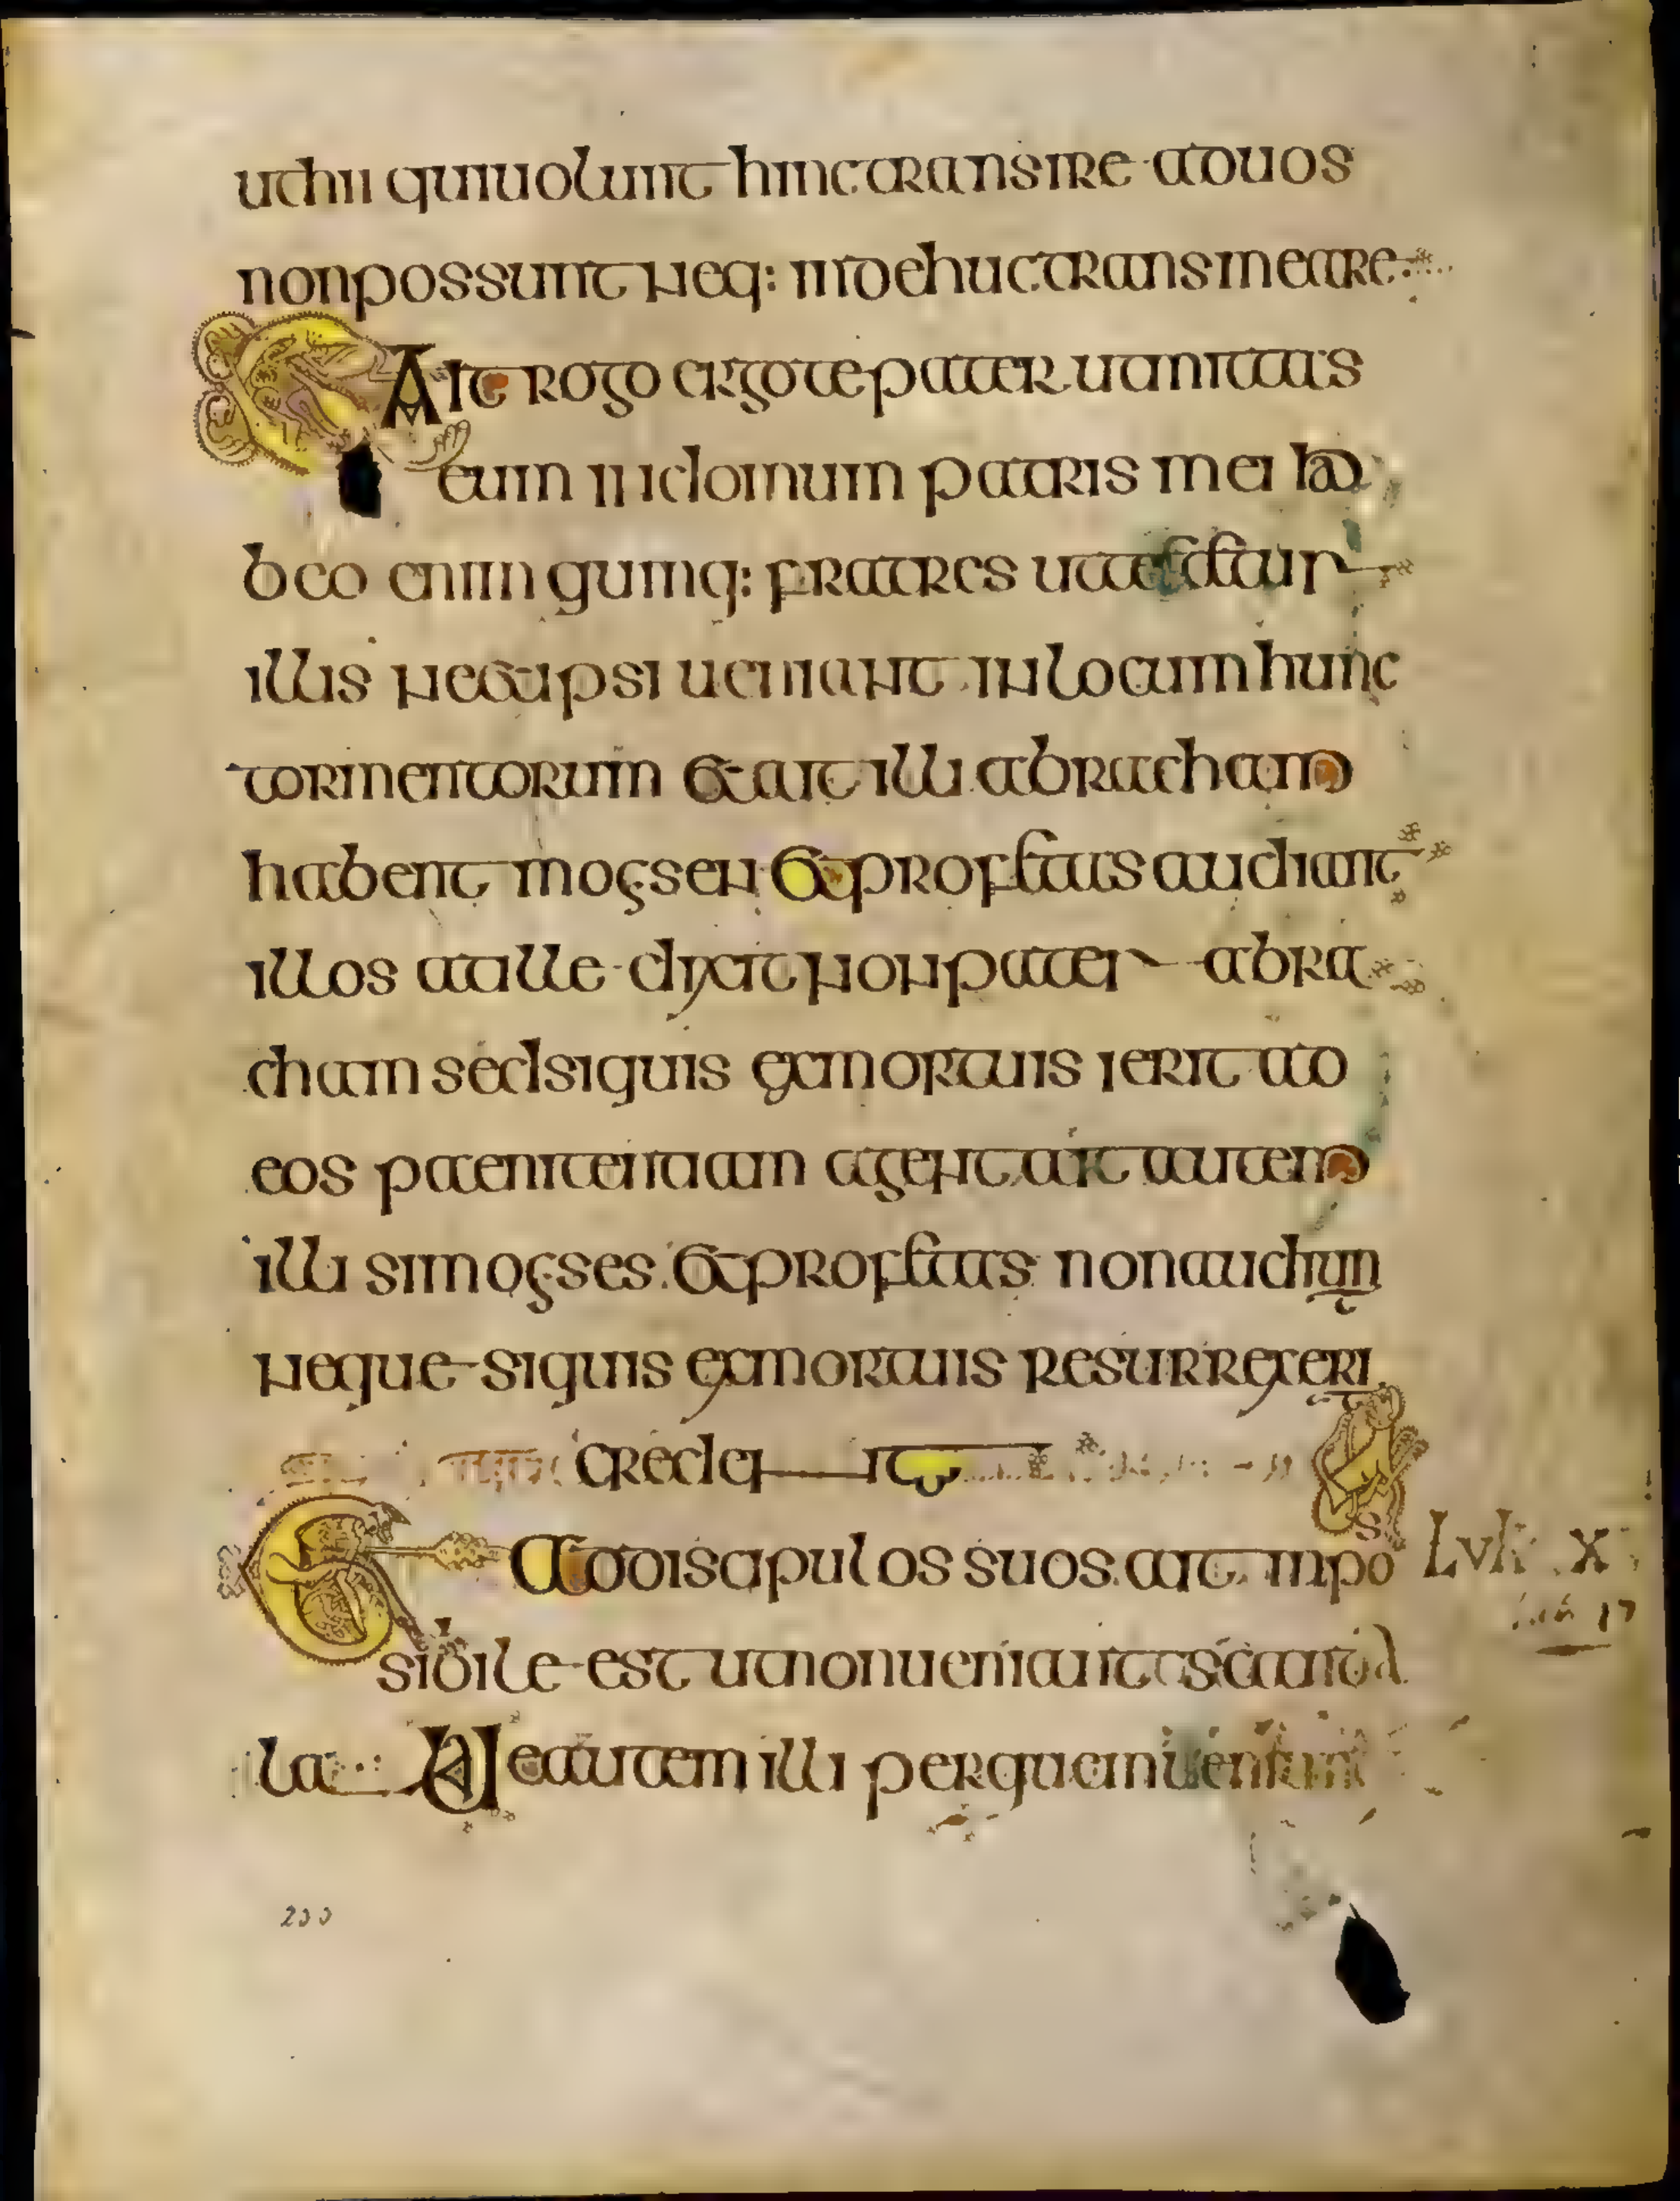 ut hii qui uolunt hinc transire ad uos
non possunt neq: inde huc transmeare
Et Ait rogo ergo te pater ut mittas
eum in domum patris mei ha
beo enim quinq: fratres ut testetur
illis ne et ipsi ueniant in locum hunc
tormentorum et ait illi abracham
habent moysen et profetas audiant
illos at ille dixit non pater abra
cham sed si quis ex mortuis ierit ad
eos paenitentiam agent ait autem
illi si moyses et profetas non audiun
neque si quis ex mortuis resurrexeri
credent
Et Ad discipulos suos ait inpo
s
sibile est ut non ueniant scand
la Uae autem illi per quem ueniunt
Luk X
17
200